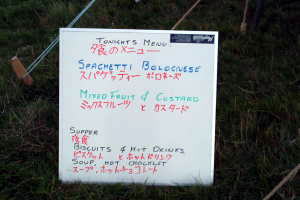 TONIGHTS MENU
夕食のメニュー
SPAGHETTI BOLOGNESE
スパゲッティー ボロネーズ
MIXED FRUIT & CUSTARD
ミックスフルーツ と カスタード
SUPPER
夜食
BISCUITS & HOT DRINKS
ビスケット と ホットドリンク
SOUP, HOT CHOCLET
スープ、ホットチョコレート